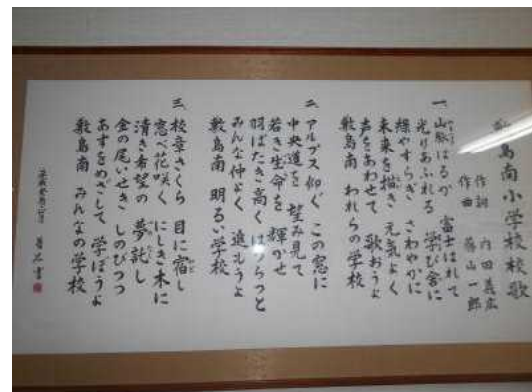 敷島南小学校校歌
作詞 内田義広
作曲 藤山一郎
一、山脈はるか 富士はれて
光りあふれる 学び舎に
緑やすらぎ さわやかに
未来を描き 元気よく
声をあわせて 歌おうよ
敷島南 われらの学校
二、アルプス仰ぐ この窓に
中央道を 望み見て
若き生命を 輝かせ
羽ばたき高く はつらつと
みんな仲よく 進もうよ
敷島南 明るい学校
三、校章さくら 目に宿し
窓べ花咲く にしき木に
清き希望の 夢託し
金の尾いせき しのびつつ
あすをめざして 学ぼうよ
敷島南 みんなの学校